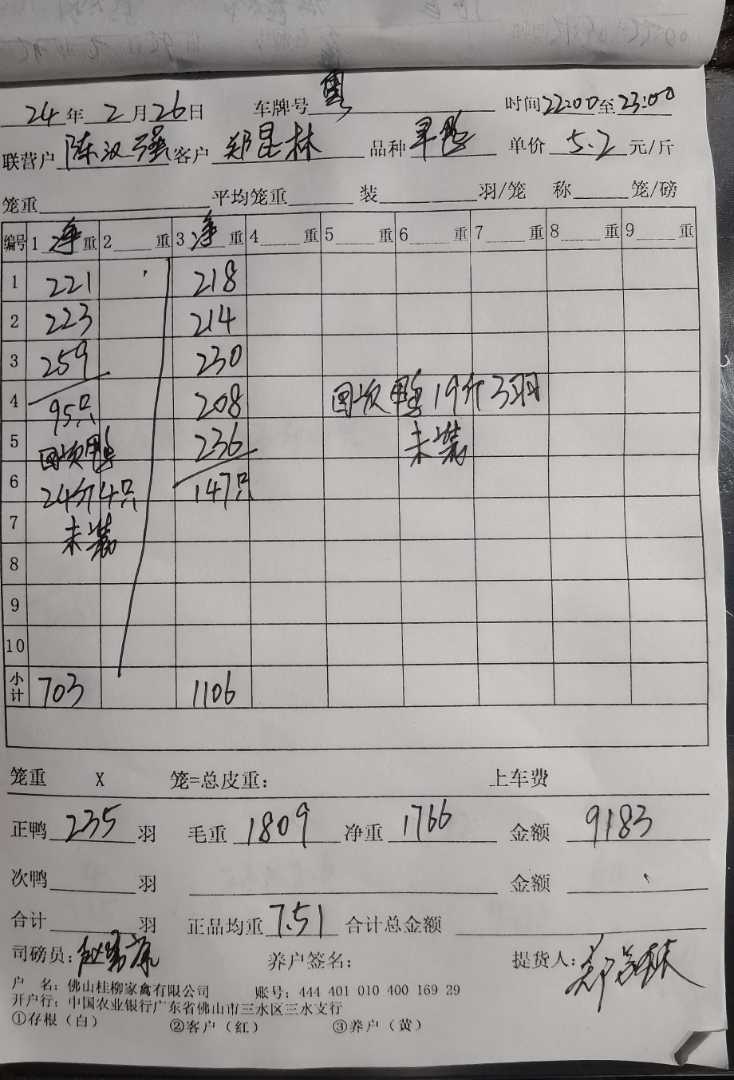 24年2月26日 车牌号粤 时间22:00至23:00
联营户陈汉强客户郑昆林 品种旱鸭 单价5.2元/斤
笼重 平均笼重 装 羽/笼 称 笼/磅
编号 1净重 2 重 3净重 4 重 5 重 6 重 7 重 8 重 9 重
1 221 218
2 223 214
3 259 230
4 95只 208 回次鸭19斤3羽
5 回次鸭 236 未装
6 24斤4只 147只
7 未装
8
9
10
小计 703 1106
笼重 X 笼=总皮重: 上车费
正鸭235羽 毛重1809 净重1766 金额9183
次鸭 羽 金额
合计 羽 正品均重7.51 合计总金额
司磅员: 养户签名: 提货人:郑昆林
户 名: 佛山桂柳家禽有限公司 账号: 444 401 010 400 169 29
开户行: 中国农业银行广东省佛山市三水区三水支行
①存根(白) ②客户(红) ③养户(黄)